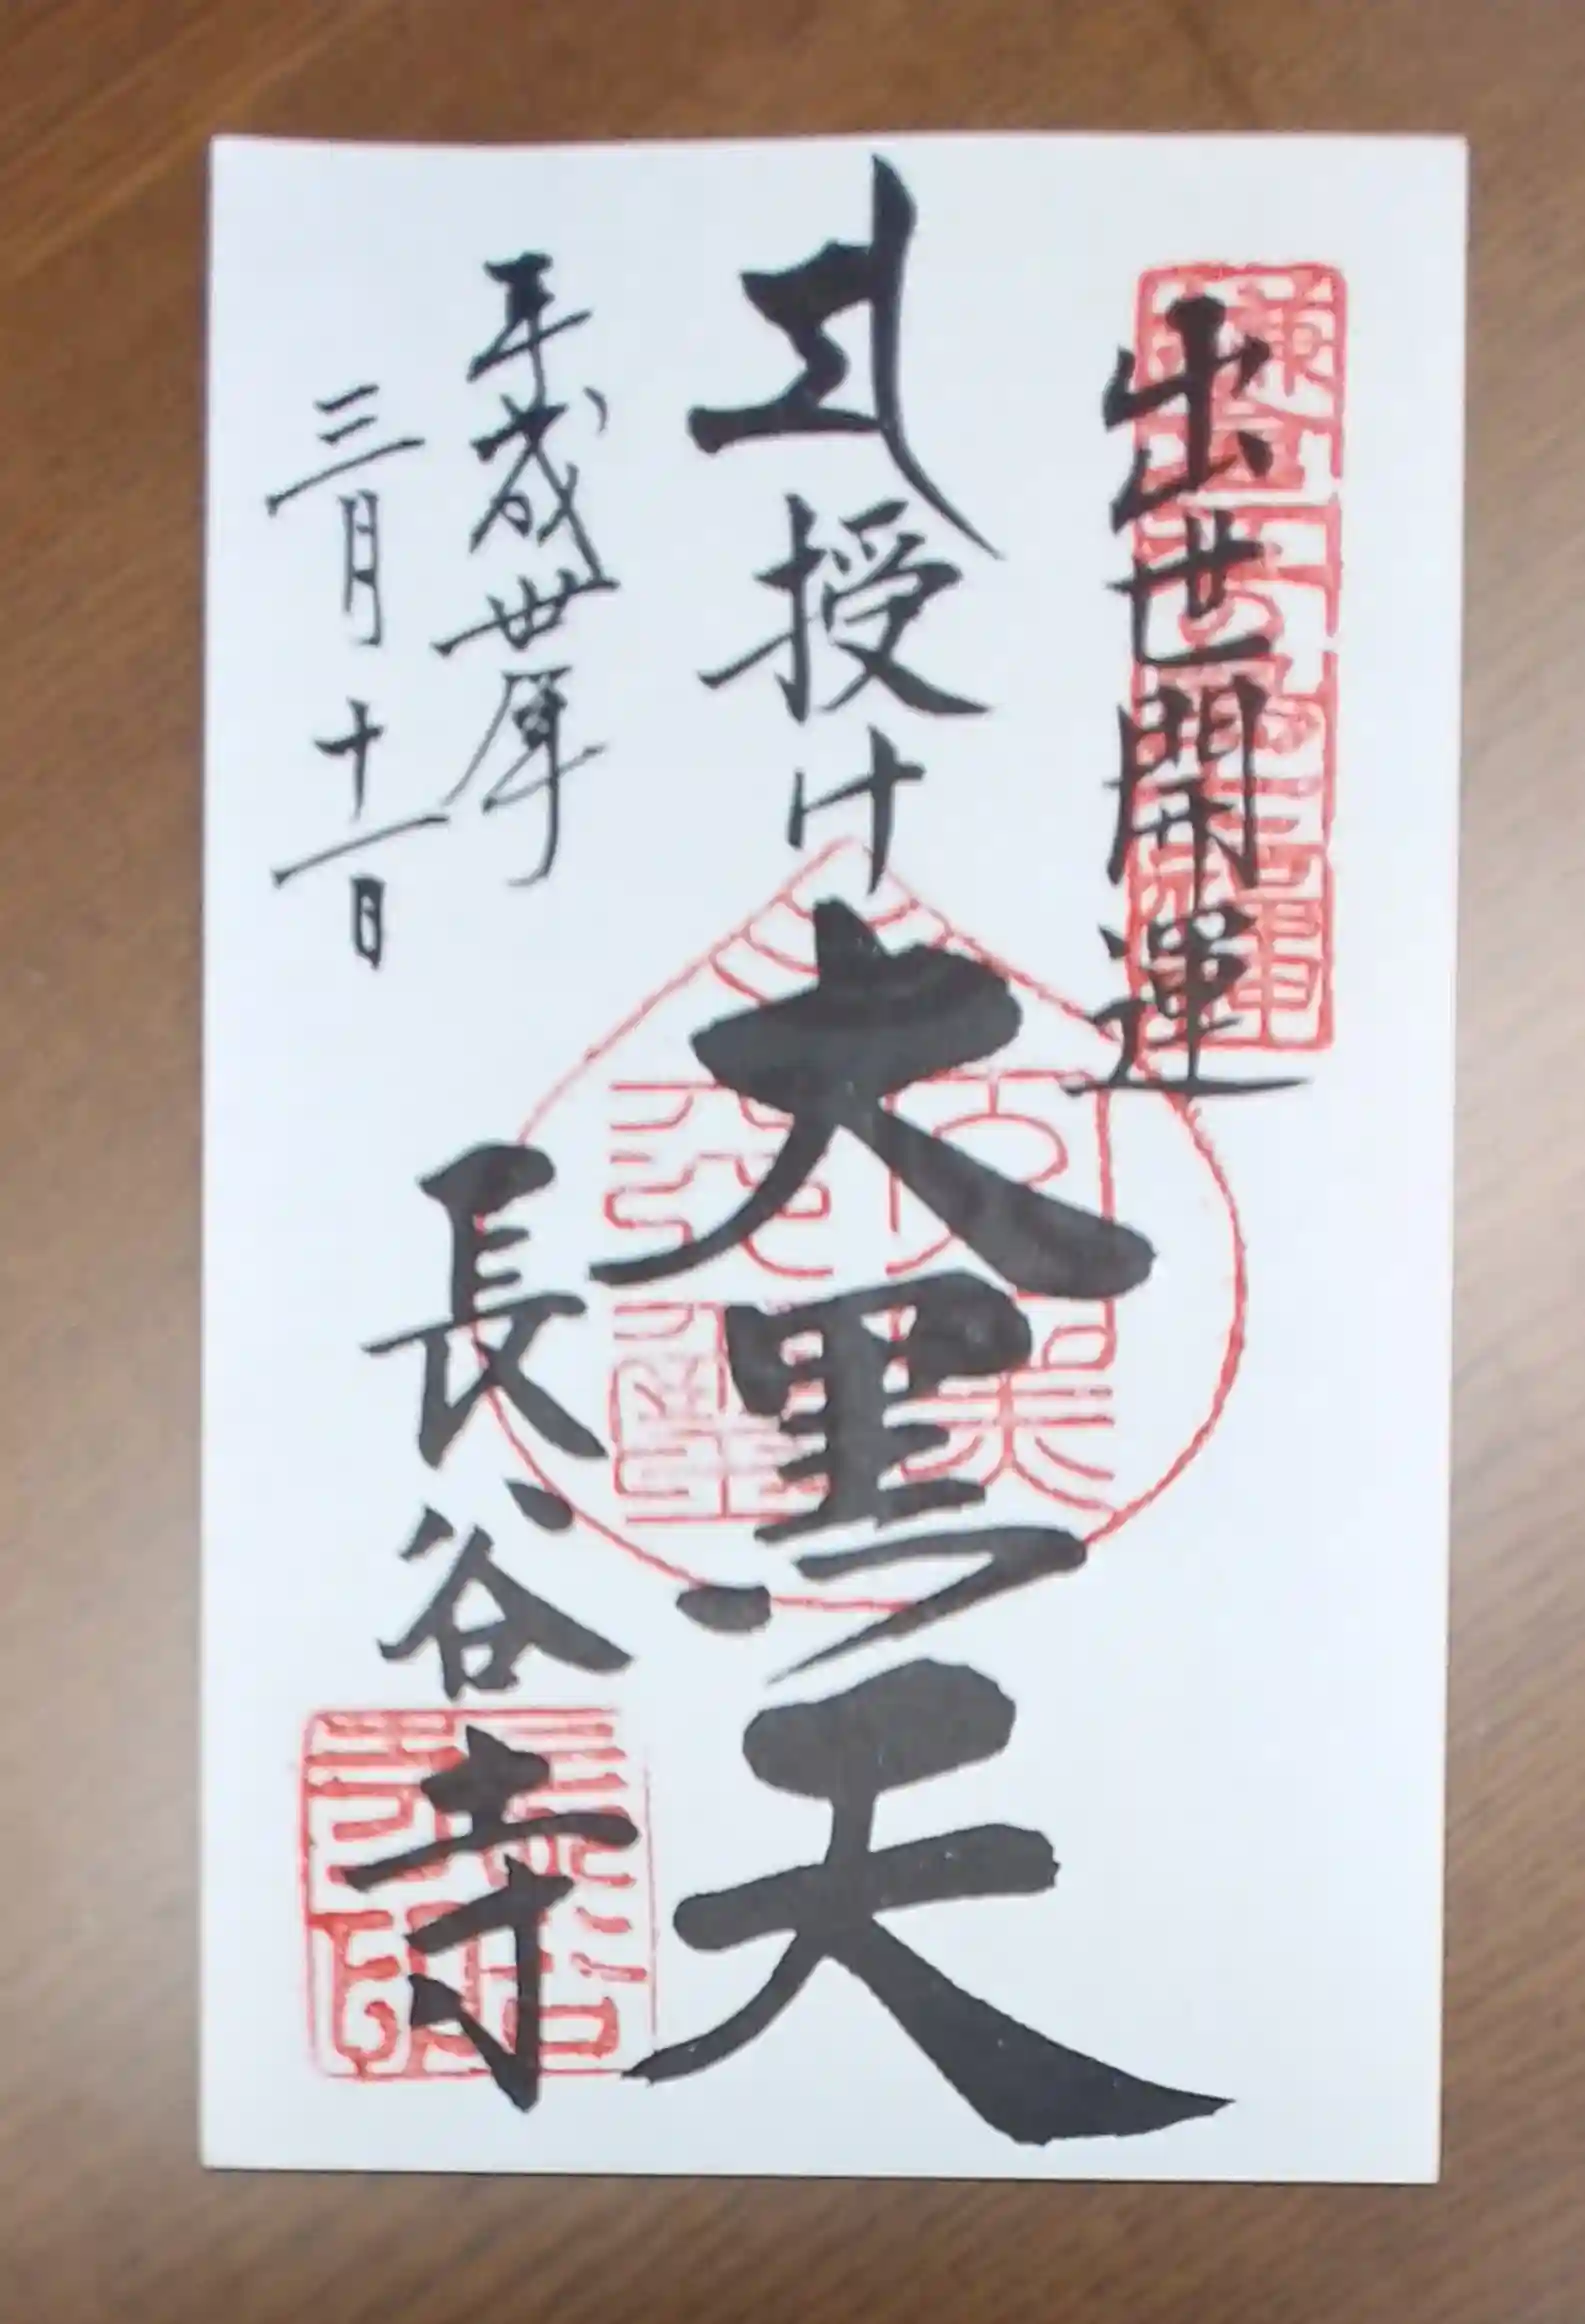 出世開運
授け大黒天
平成丗
三月十一日
長谷寺